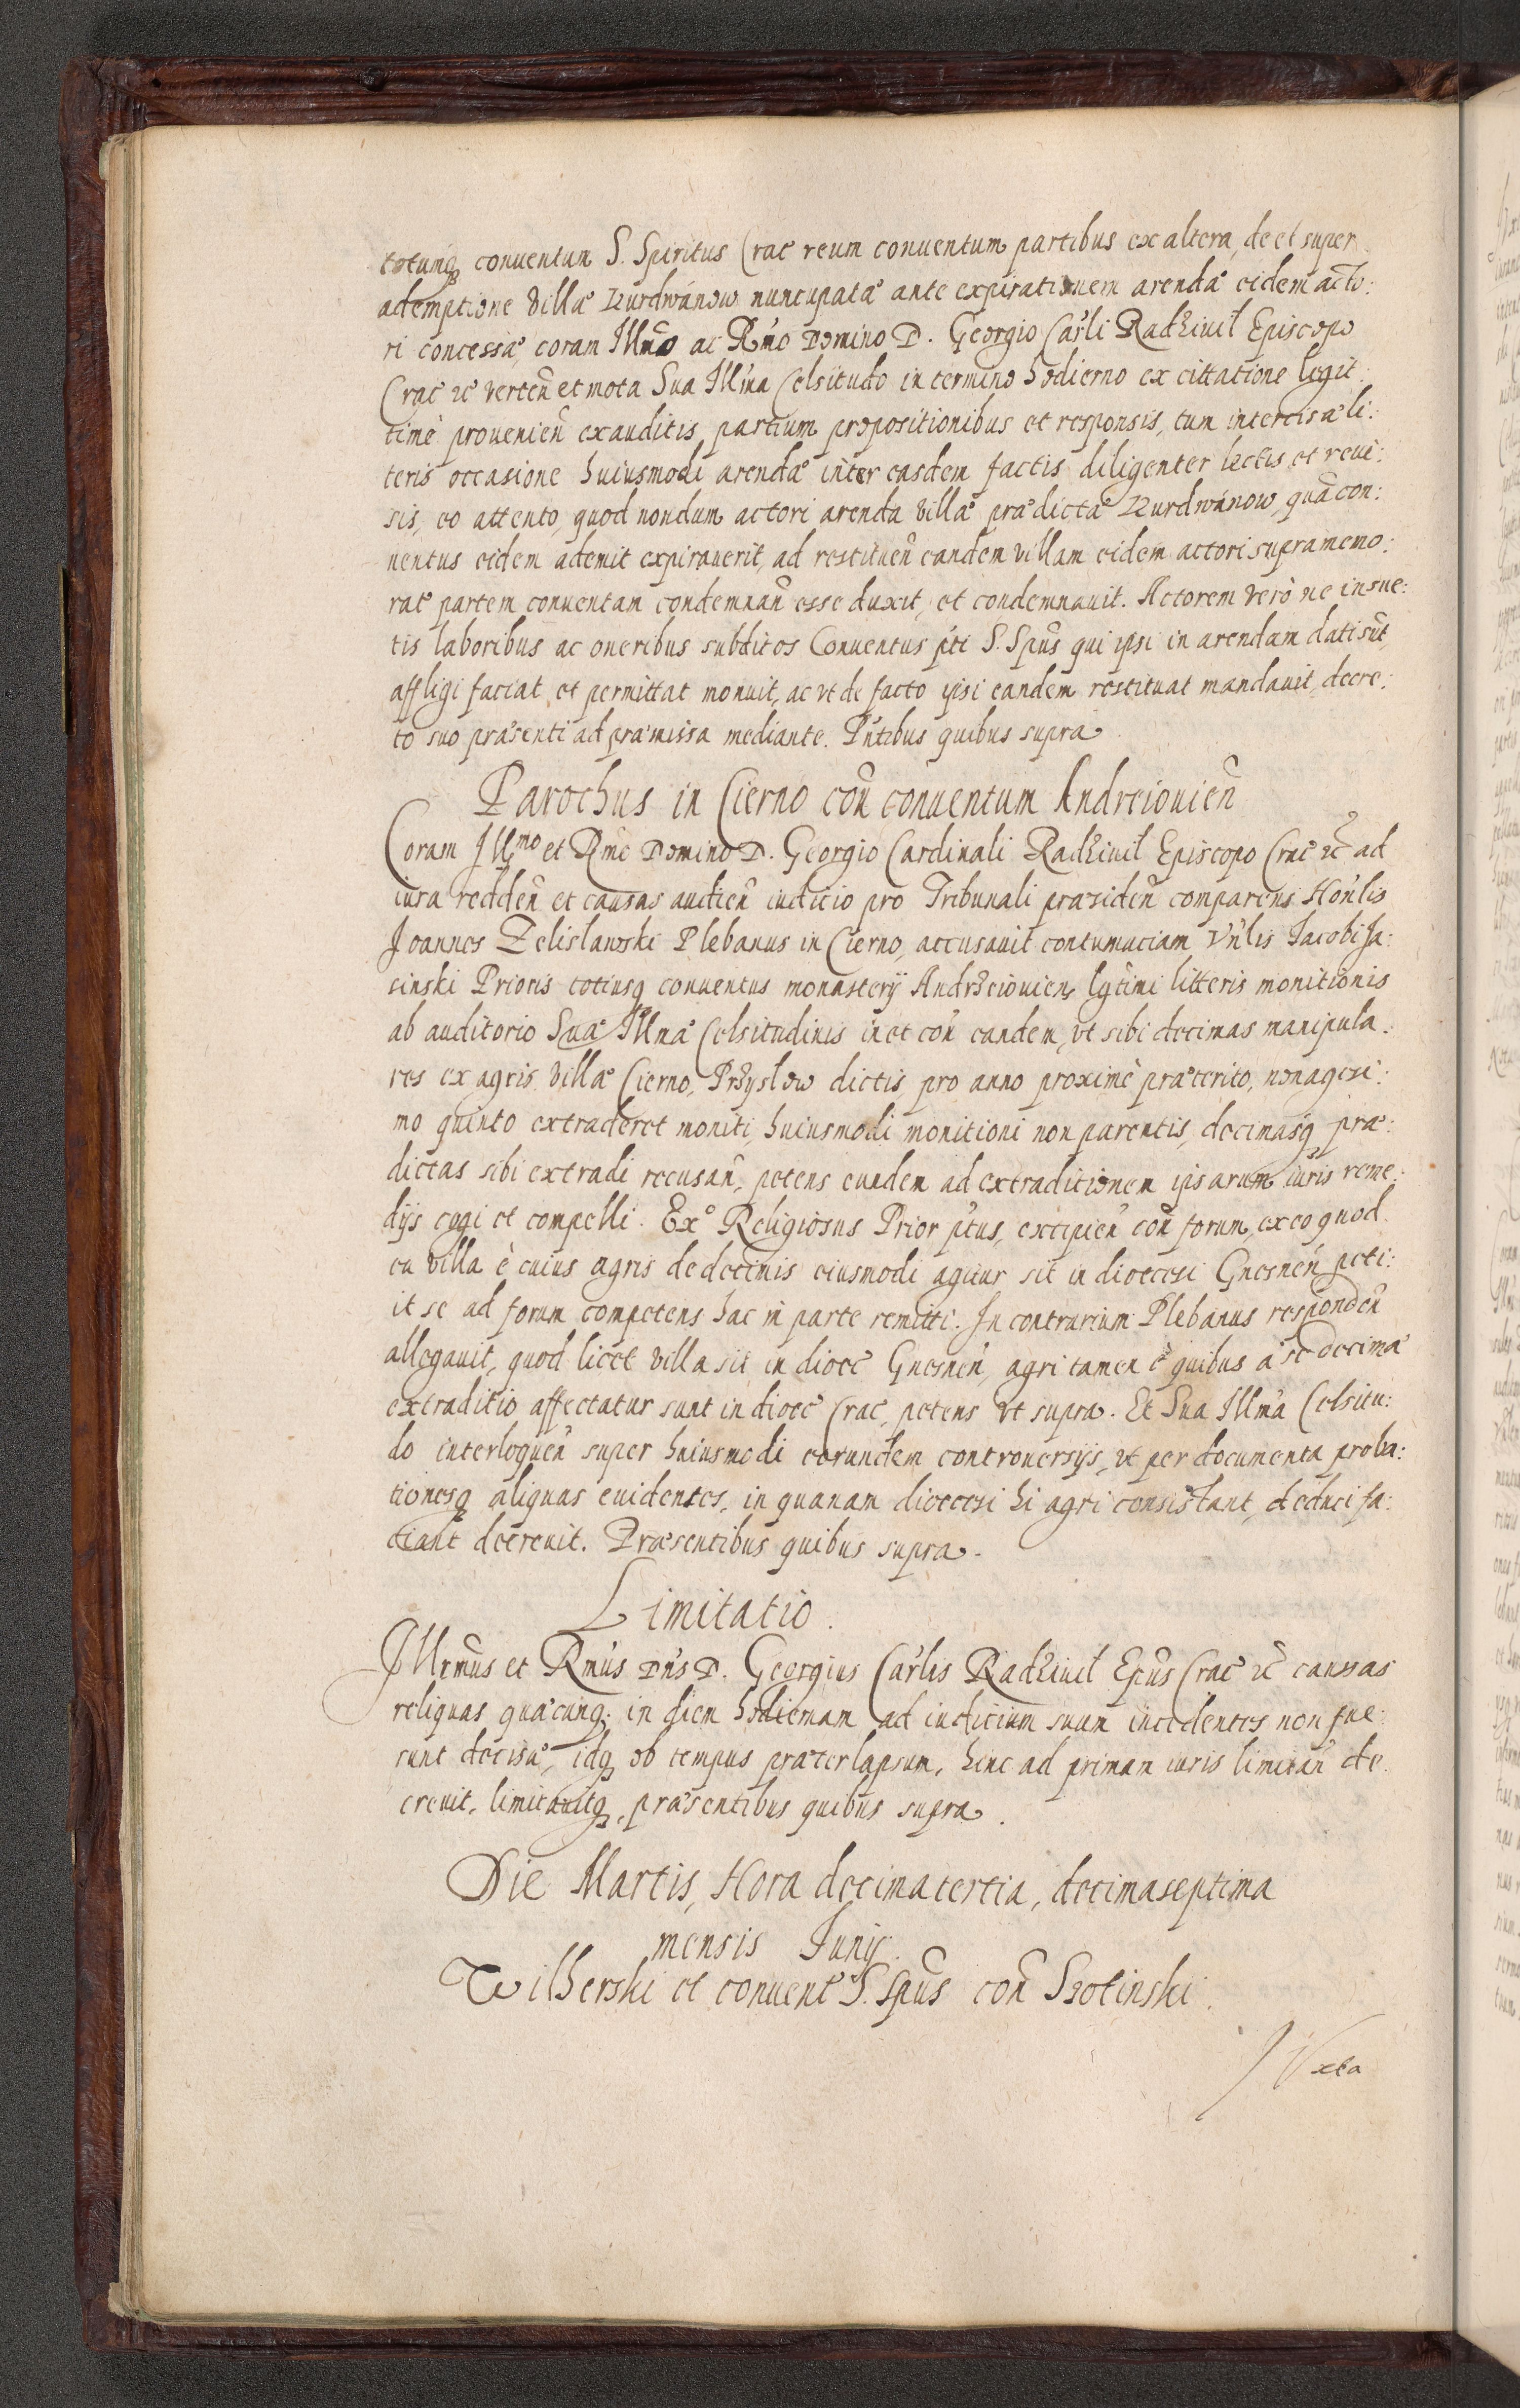 totumq́ conuentum S. Spiritus Crac̃ reum conuentum partibus ex altera, de et super
ademptione villæ Kurdwánow nuncupatæ ante expirationem arendæ eidem acto:
ri concessæ, coram Illmo ac Rmo Domino D. Georgio Carli Radziuil Episcopo
Crac̃ &c verteñ et mota Sua Illma Celsitudo in termino hodierno ex cittatione legit:
timè prouenieñ exauditis partium propositionibus et responsis, tum intercisæ li:
teris occasione huiusmodi arendæ inter easdem factis diligenter lectis et reui:
sis, eo attento, quod nondum actori arenda villæ prædictæ Kurdwánow, quã con:
uentus eidem ademit expirauerit, ad restitueñ eandem villam eidem actori supra memo:
rat̃ partem conuentam condemnañ esse duxit, et condemnauit. Actorem verò ne insue:
tis laboribus ac oneribus subditos Conuentus pti S. Spũs qui ipsi in arendam dati sũt,
affligi faciat et permittat monuit, ac vt de facto ipsi eandem restituat mandauit, decre:
to suo præsenti ad præmissa mediante. Pñtibus quibus supra
Parochus in Cierno coñ conuentum Andreiouieñ
Coram Illmo et Rmo Domino D. Georgio Cardinali Radziuil Episcopo Crac̃ &c ad
iura reddeñ et causas audieñ iudicio pro Tribunali præsideñ comparens Honlis
Joannes Zelislawski Plebanus in Cierno, accusauit contumaciam Vnlis Jacobi Ja:
sinski Prioris totiusq́ conuentus monasterij Andrzeiouien̄ lgtimi litteris monitionis
ab auditorio Suæ Illmæ Celsitudinis in et coñ eandem, vt sibi decimas manipula:
res ex agris villæ Cierno, Przyslow dictis, pro anno proximè præterito, nonagesi:
mo quinto extraderet moniti, huiusmodi monitioni non parentis, decimasq́ præ:
dictas sibi extradi recusañ, petens eundem ad extraditionem ipsarum iuris reme:
dijs cogi et compelli. Exo Religiosus Prior ptus, excipieñ coñ forum, ex eo quod
ea villa è cuius agris de decimis eiusmodi agitur sit in dioecesi Gnesneñ peti:
it se ad forum competens hac in parte remitti. In contrarium Plebanus respondeñ
allegauit, quod licet villa sit in dioec̃ Gnesneñ, agri tamen è quibus à se decimæ
extraditio affectatur sunt in dioec̃ Crac̃, petens vt supra. Et Sua Illma Celsitu:
do interloqueñ super huiusmodi eorundem controuersijs, vt per documenta proba:
tionesq́ aliquas euidentes, in quanam dioecesi hi agri consistant, deduci fa:
ciant decreuit. Præsentibus quibus supra.
Limitatio.
Illrmus et Rmus Dns D. Georgius Carlis Radziuil Epũs Crac̃ &c caussas
reliquas quæcunq́. in diem hodiernam ad iudicium suum incidentes non fue:
runt decisæ, idq́ ob tempus præterlapsum, hinc ad primam iuris limitañ de
creuit, limitauitq́, præsentibus quibus supra.
Die Martis, Hora decimatertia, decimaseptima
mensis Junij.
Wilherski et conuent̃ S. Spũs coñ Szotinski.